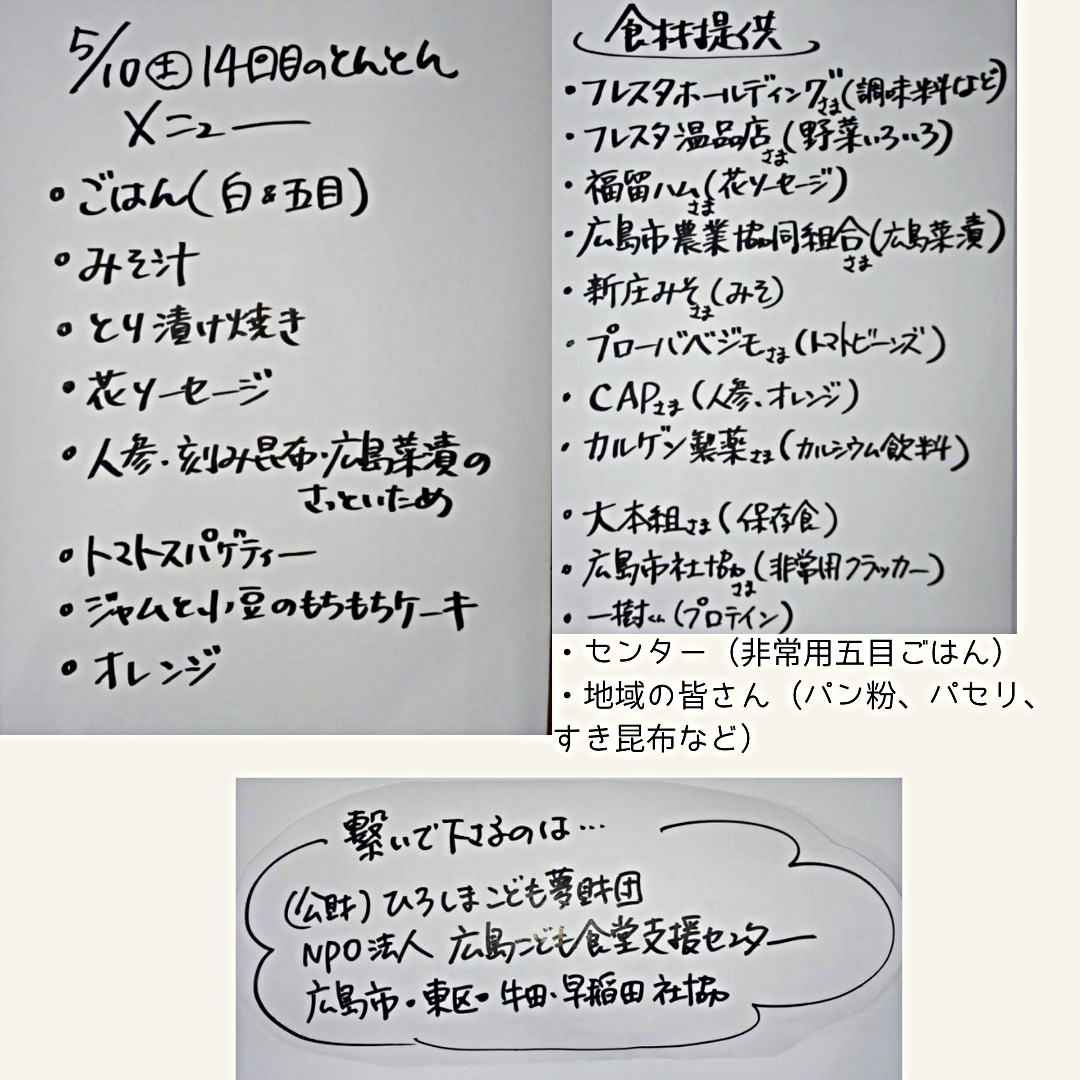 5/10㊏14回目のとんとん
メニュー
・ごはん(白&五目)
・みそ汁
・とり漬け焼き
・花ソーセージ
・人参・刻み昆布・広島菜漬の
さっといため
・トマトスパゲティー
・ジャムと小豆のもちもちケーキ
・オレンジ
食材提供
・フレスタホールディングさま(調味料など)
・フレスタ温品店さま(野菜いろいろ)
・福留ハムさま(花ソーセージ)
・広島市農業協同組合さま(広島菜漬)
・新庄みそさま(みそ)
・プローバベジモさま(トマトビーンズ)
・CAPさま(人参、オレンジ)
・カルゲン製薬さま(カルシウム飲料)
・大本組さま(保存食)
・広島市社協さま(非常用クラッカー)
・一樹くん(プロテイン)
・センター（非常用五目ごはん）
・地域の皆さん（パン粉、パセリ、
すき昆布など）
繋いで下さるのは…
(公財)ひろしまこども夢財団
NPO法人 広島こども食堂支援センター
広島市・東区・牛田・早稲田社協